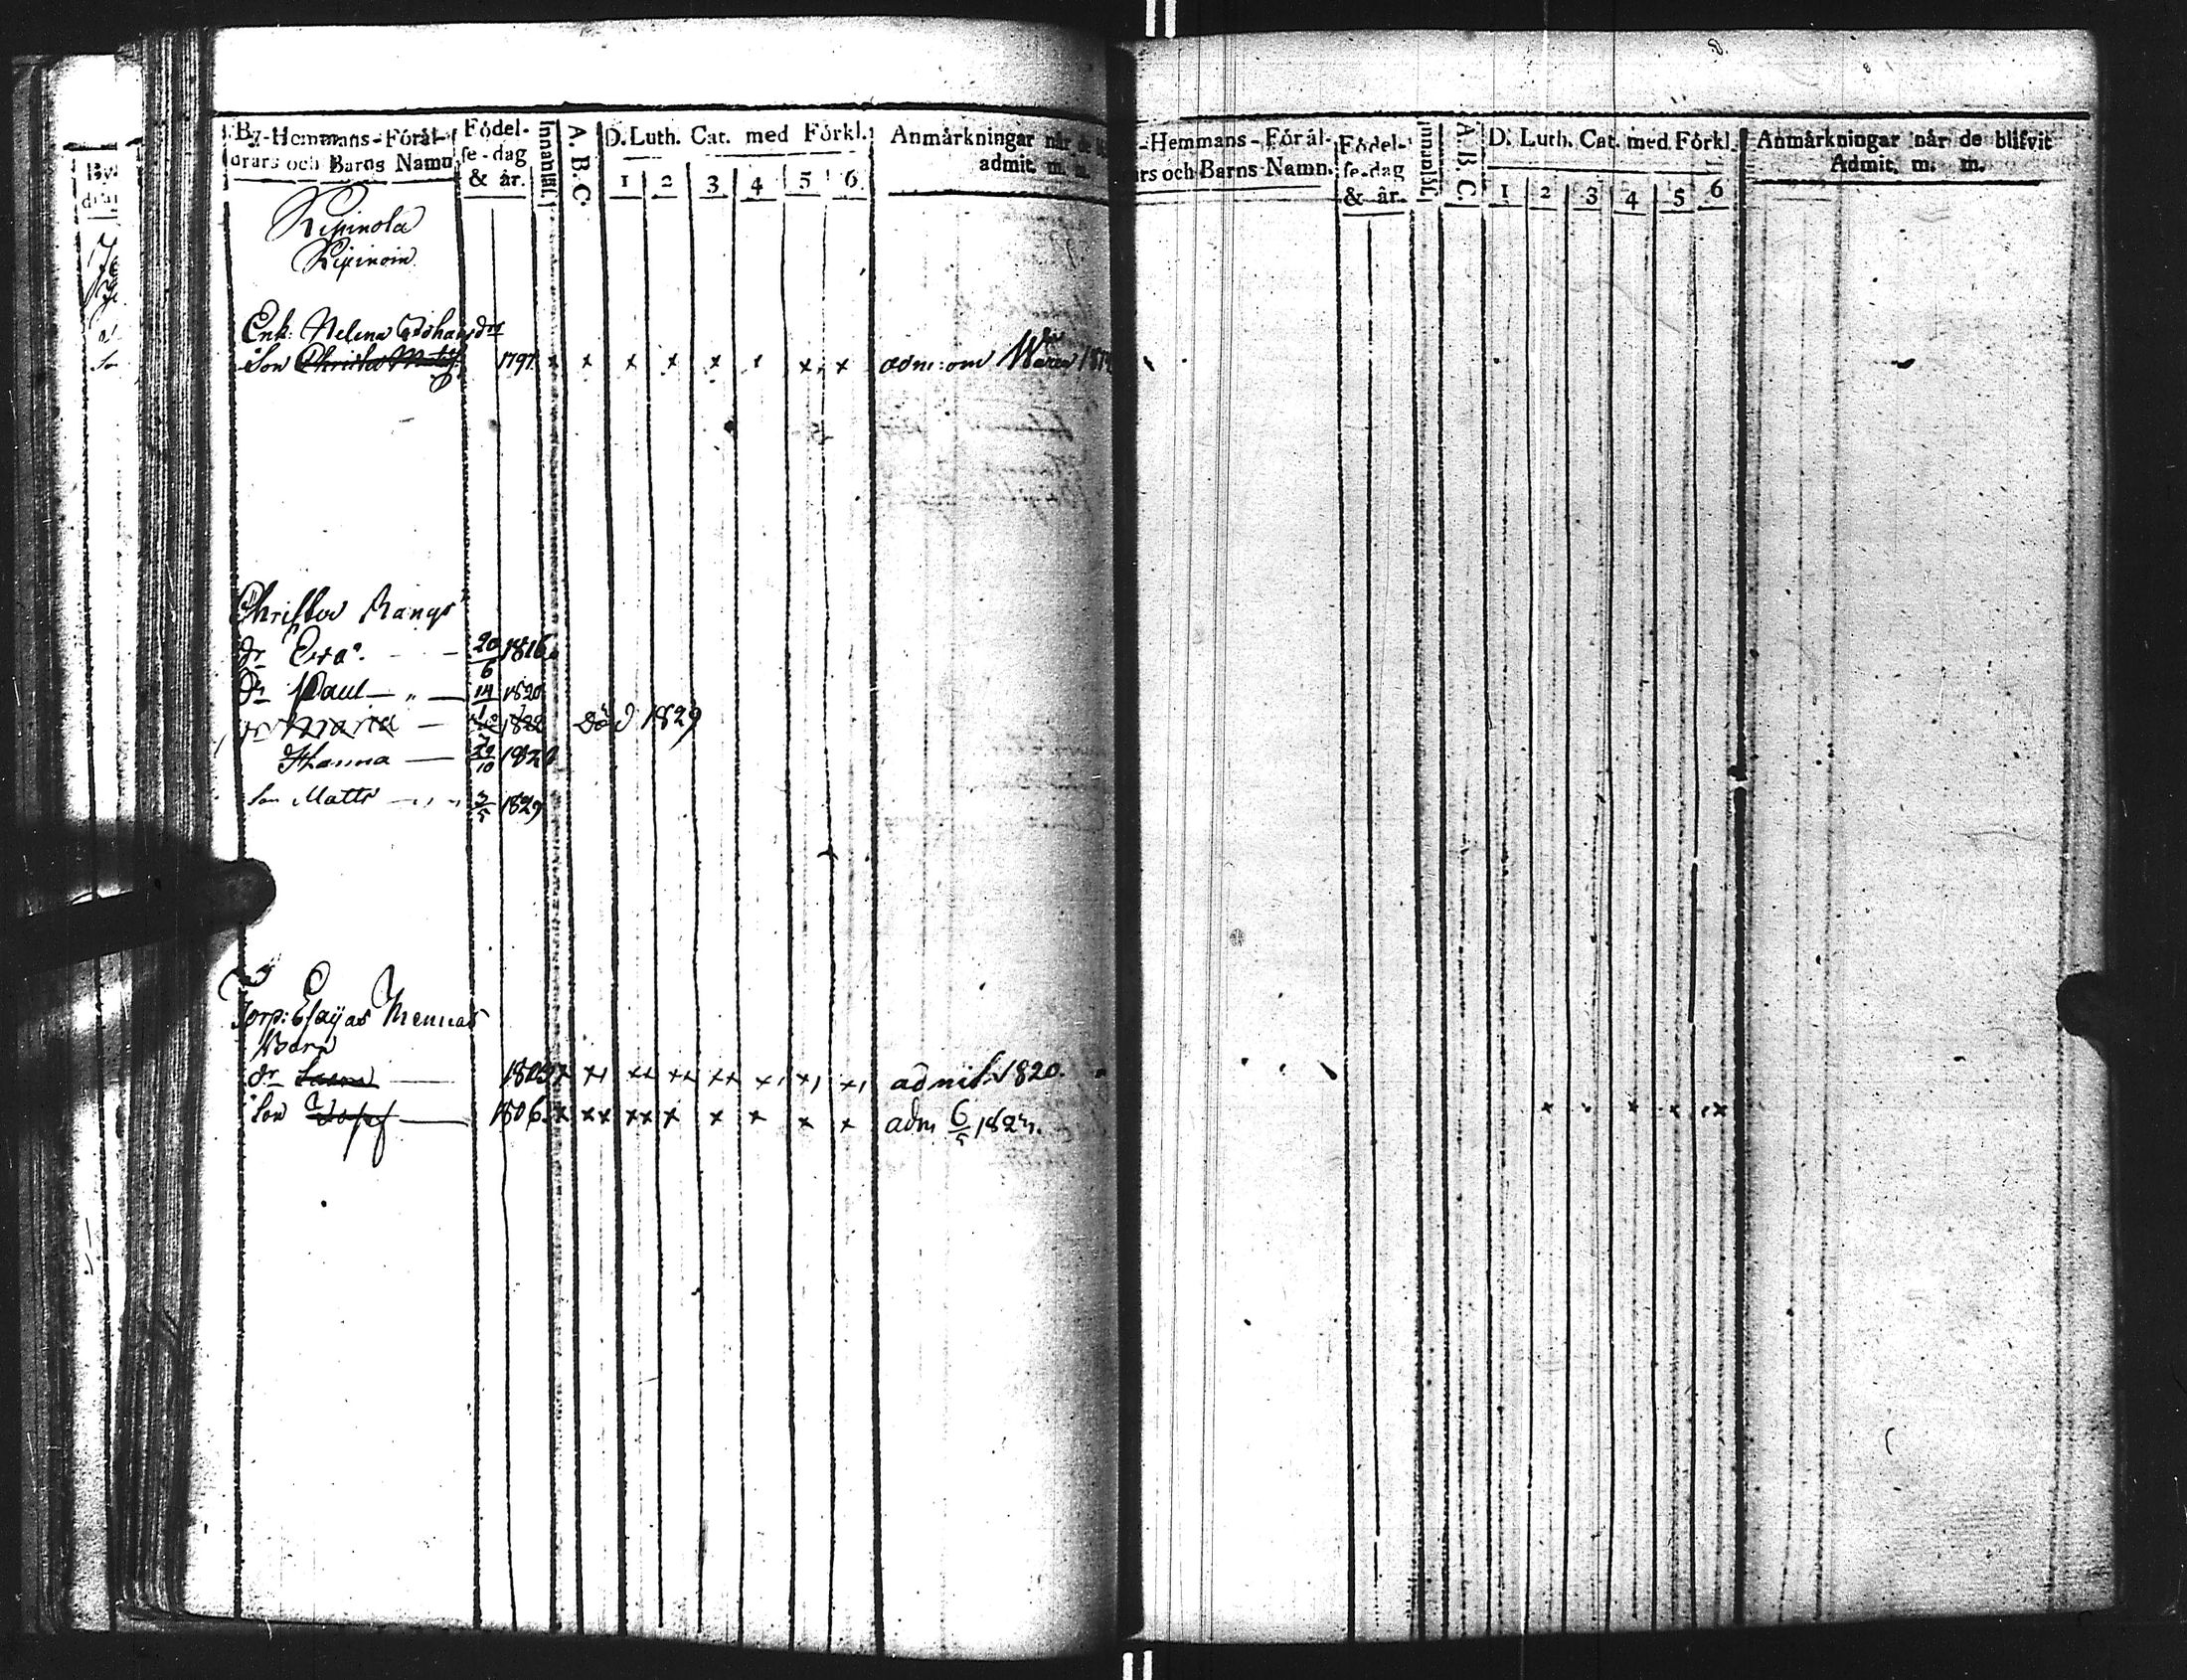 By-Hemmans-Föräl-
drars och Barns Namn.
Födel-
se-dag
& år.
Innanläsn.
A. B. C.
D. Luth. Cat. med Förkl.
1 2 3 4 5 6
Anmärkningar när de
admit. m. m.
Ripinola
Ripinoin
Enk: Helena Johansdr
Son Christer Matts 1797. x x x x x x x x adm: om Wåren
Christer Rangs
dr Eva. 20/6 1816
Dr Paul 14/1 1820
dr Maria 1822 Död 1829
Hanna 20/10 182
Son Matts 3/5 1829
Torp: Esaijas Thennas
Barn
dr 1803 admit. 1820.
Son Josef 1806. x xx xx x x x x x adm 6/5 182
-Hemmans-Föräl-
rs och Barns Namn.
Födel-
se-dag
& år.
Innanläsn.
A. B. C.
D. Luth. Cat. med Förkl.
1 2 3 4 5 6
Anmärkningar när de blifvit
Admit. m. m.